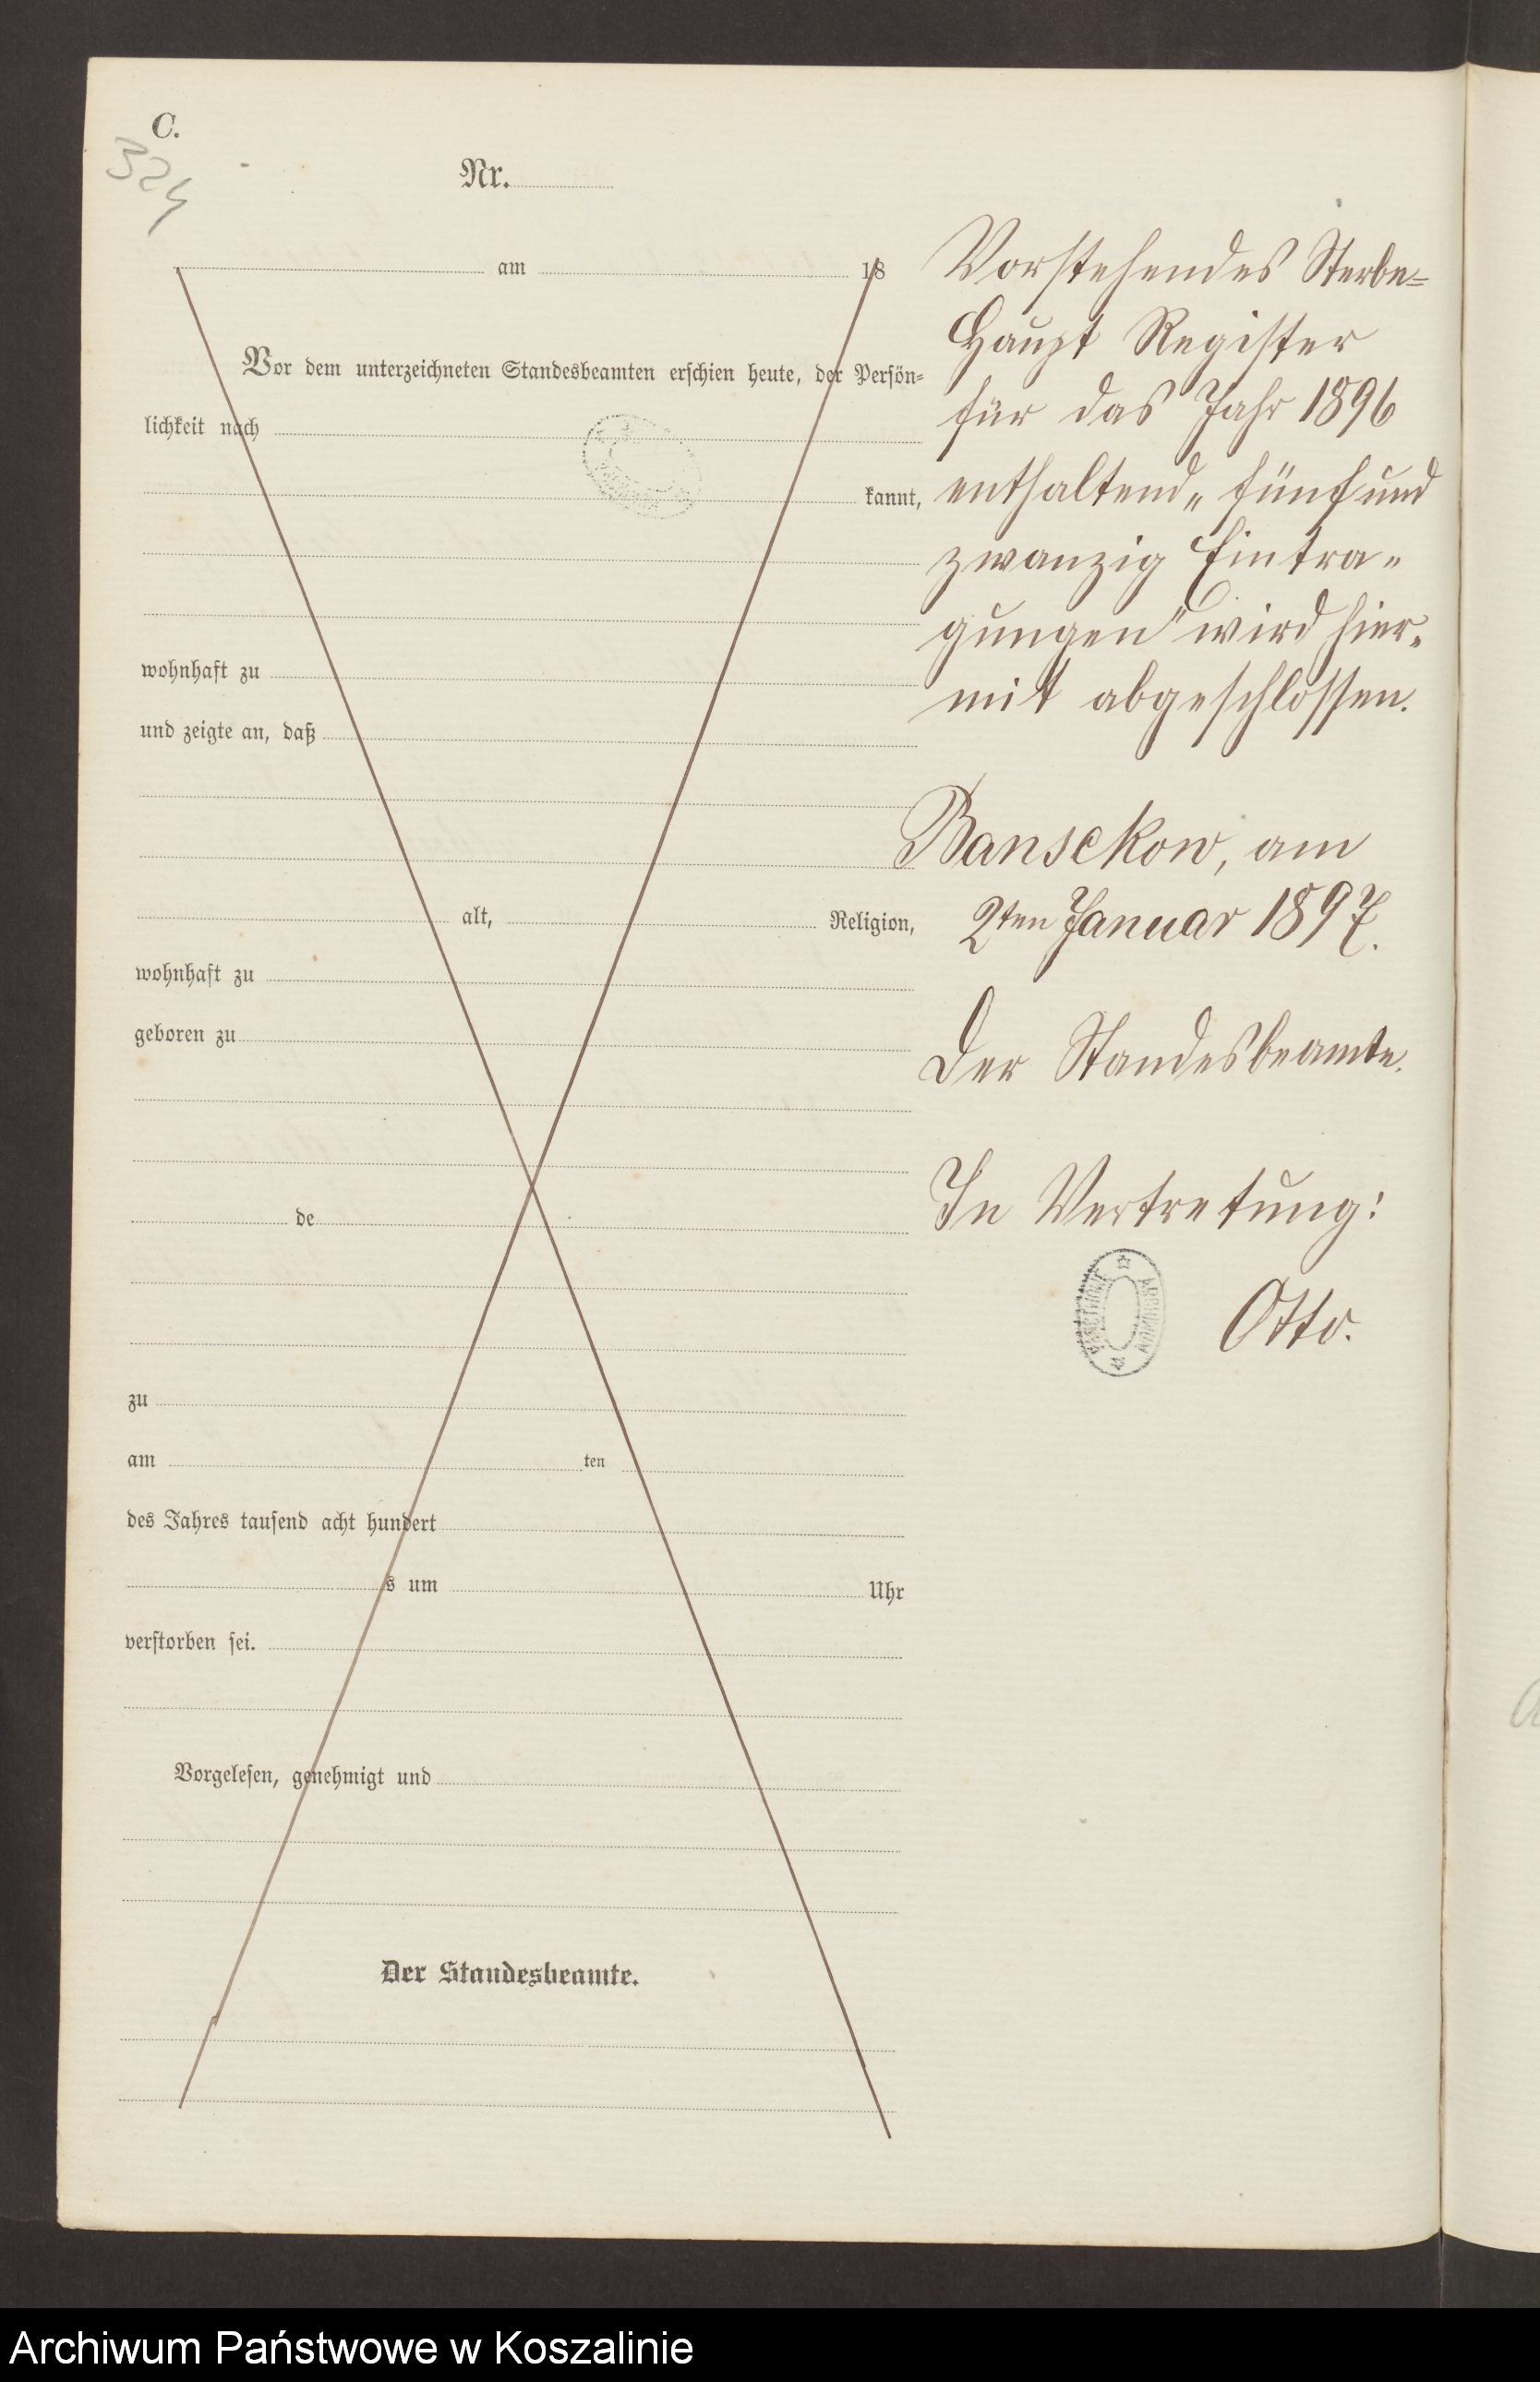 C.
324
Nr.
am 18
Vor dem unterzeichneten Standesbeamten erschien heute, der Persön=
lichkeit nach
kannt,
wohnhaft zu
und zeigte an, daß
alt, Religion,
wohnhaft zu
geboren zu
de
zu
am ten
des Jahres tausend acht hundert
s um Uhr
verstorben sei.
Vorgelesen, genehmigt und
Der Standesbeamte.
Vorstehendes Sterbe=
Haupt Register
für das Jahr 1896
enthaltend „ fünf und
zwanzig Eintra-
gungen" wird hier-
mit abgeschlossen.
Bansekow, am
2ten Januar 1897.
Der Standesbeamte.
In Vertretung:
Otto.
Archiwum Państwowe w Koszalinie